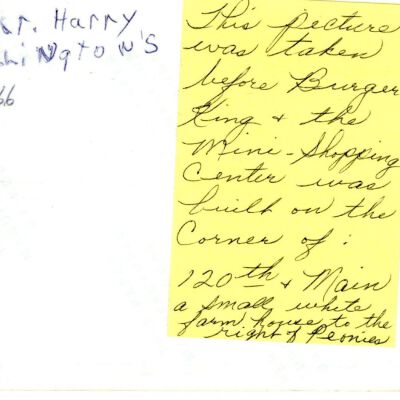 r. Harry
hiNgtoN'S
66
This picture
was taken
before Burger
King + the
Mini-Shopping
Center was
built on the
Corner of :
120th + Main
a small white
farm house to the
right of Peonies